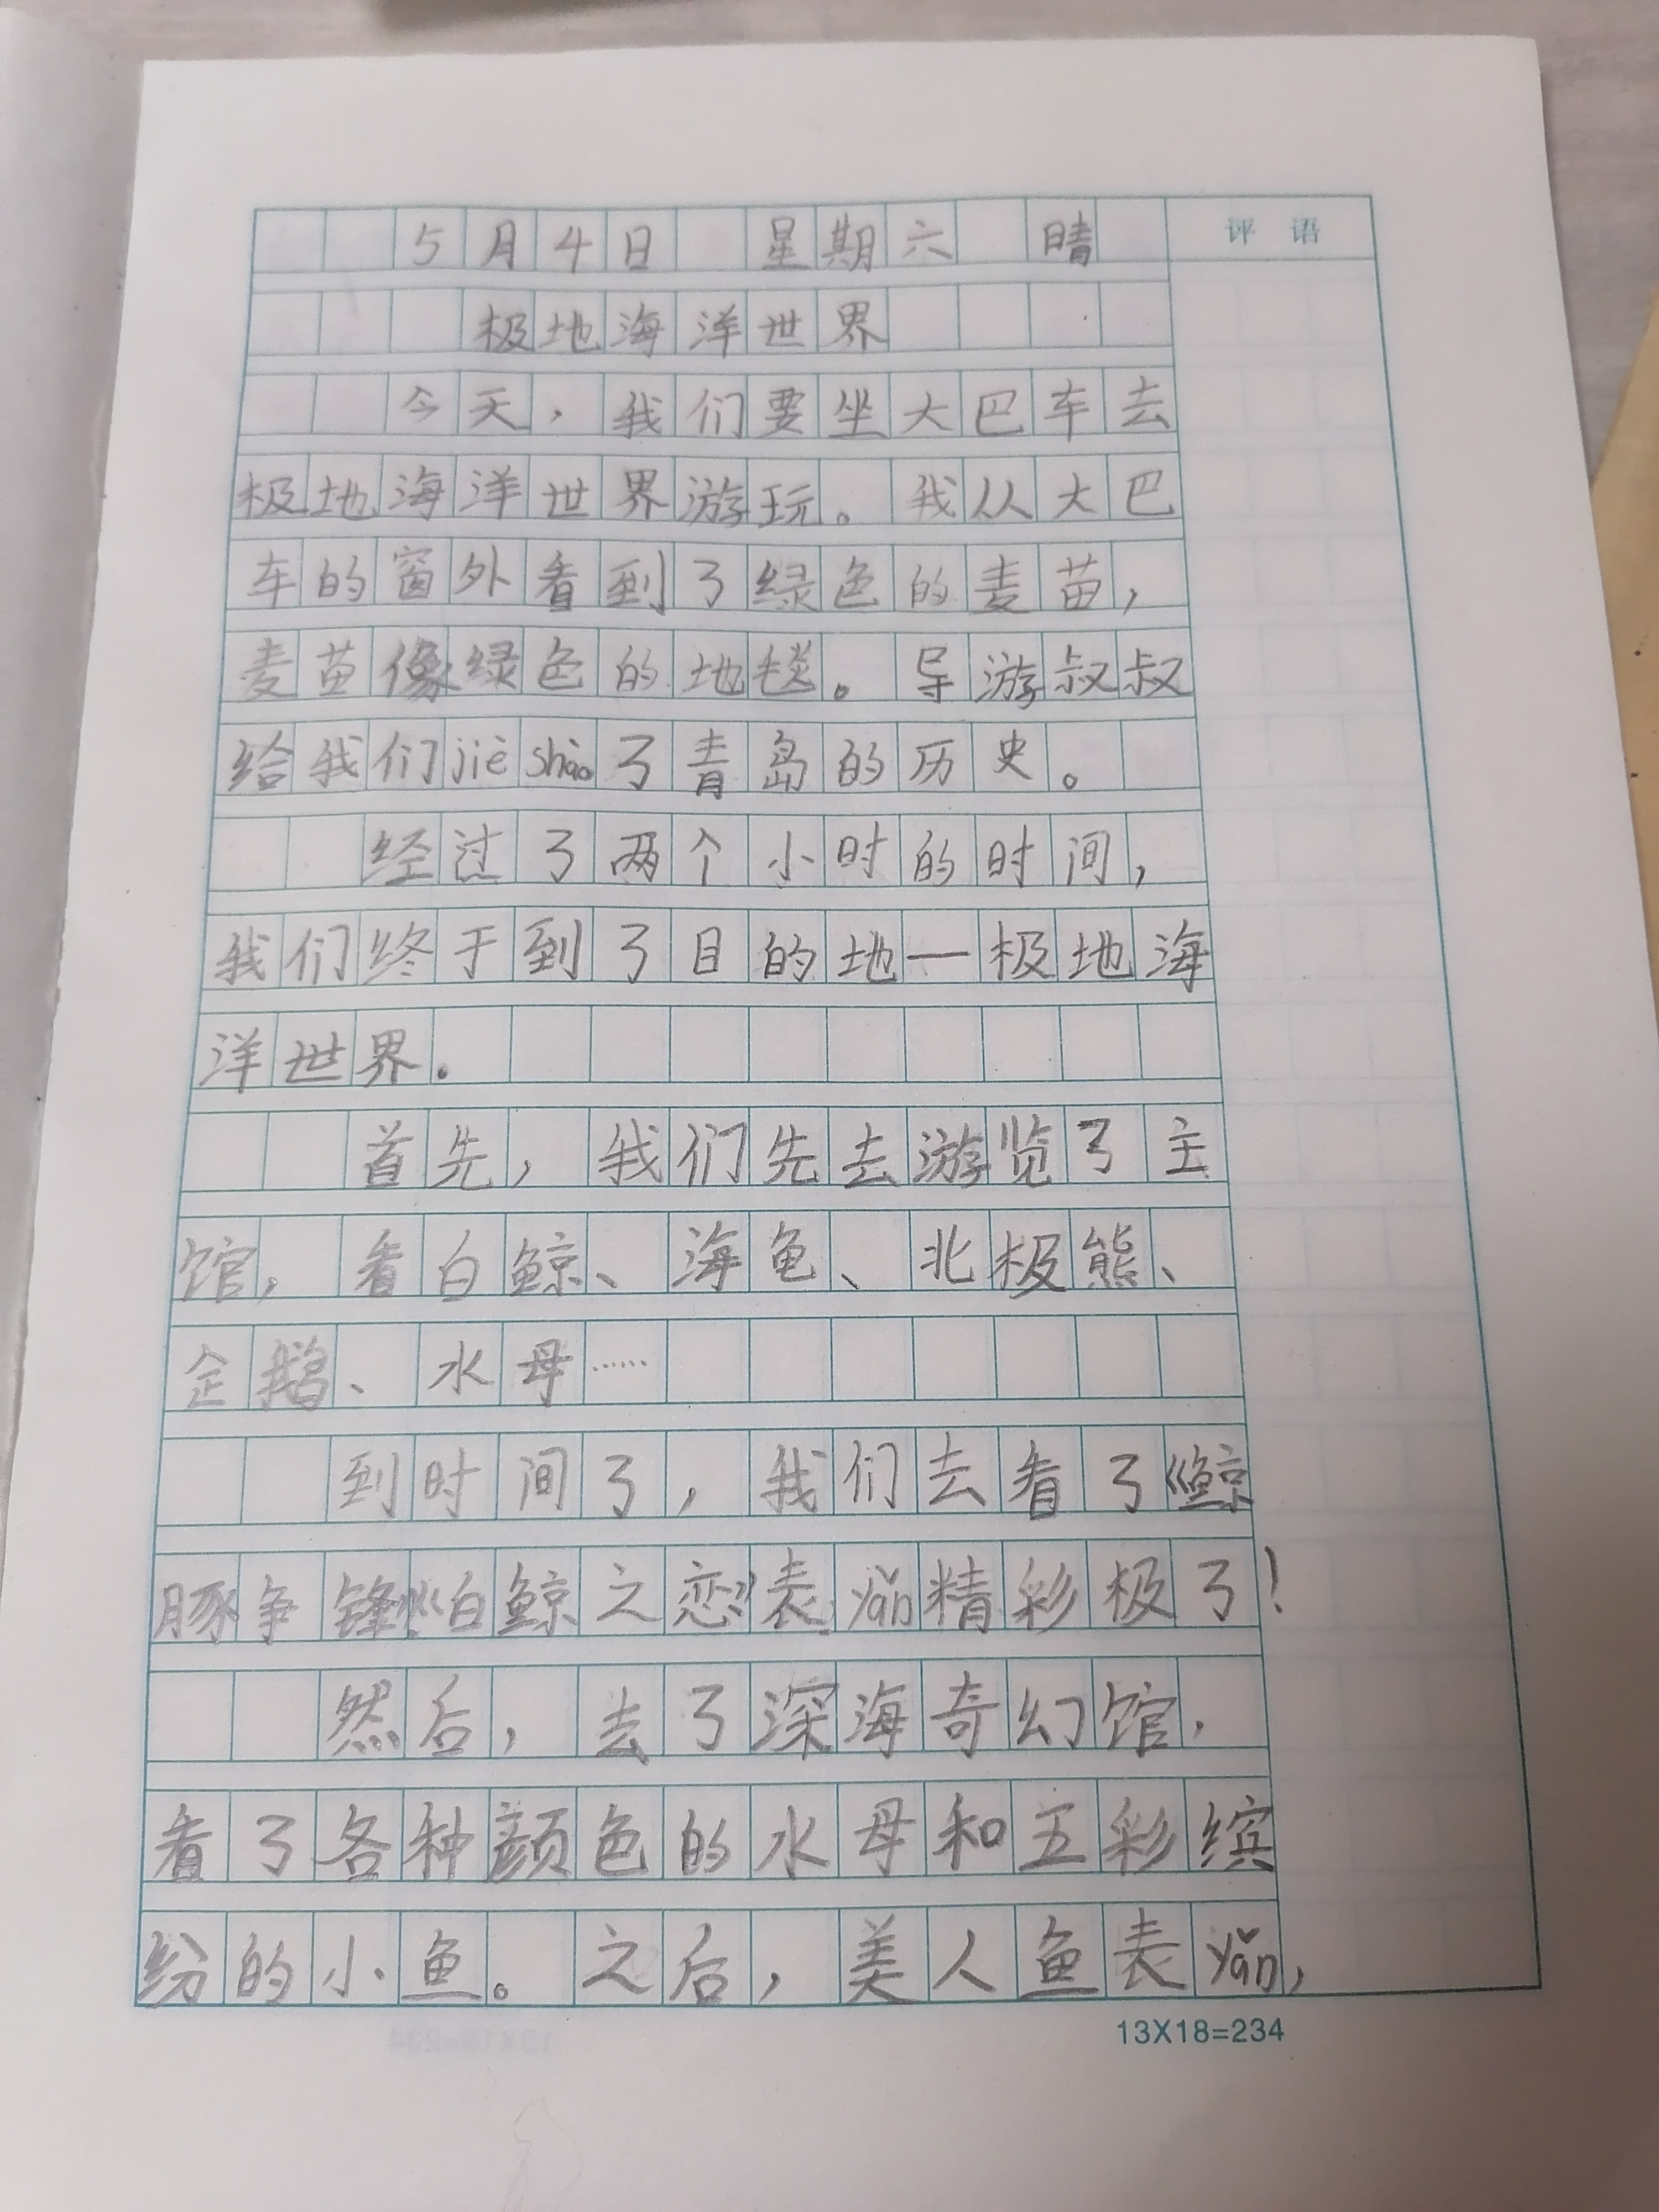 5月4日 星期六 晴
评语
极地海洋世界
今天，我们要坐大巴车去
极地海洋世界游玩。我从大巴
车的窗外看到了绿色的麦苗，
麦苗像绿色的地毯。导游叔叔
给我们jiè shào了青岛的历史。
经过了两个小时的时间，
我们终于到了目的地—极地海
洋世界.
首先，我们先去游览了主
馆，看白鲸、海龟、北极熊、
企鹅、水母……
到时间了，我们去看了《鲸
豚争锋》《白鲸之恋》表yǎn精彩极了！
然后，去了深海奇幻馆，
看了各种颜色的水母和五彩缤
纷的小鱼。之后，美人鱼表yǎn，
13X18=234